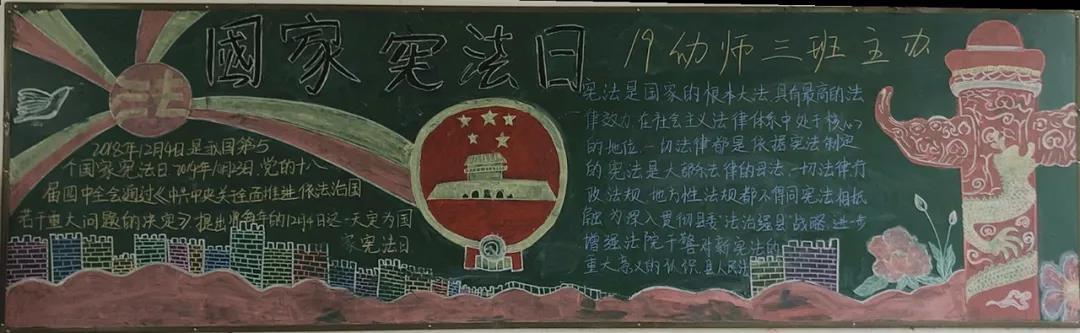 國家宪法日
19幼师三班主办
法
2018年12月4日是我国第5
个国家宪法日.2014年10月23日,党的十八
届四中全会通过《中共中央关于全面推进依法治国
若干重大问题的决定》提出,将每年的12月4日这一天定为国
家宪法日
宪法是国家的根本大法,具有最高的法
律效力,在社会主义法律体系中处于核心
的地位,一切法律都是依据宪法制定
的宪法是大部分法律的母法,一切法律行
政法规,地方性法规都不得同宪法相抵
融为深入贯彻县委"法治经县"战略,进步
增强法院干警对新宪法的
重大意义的认识,县人民法